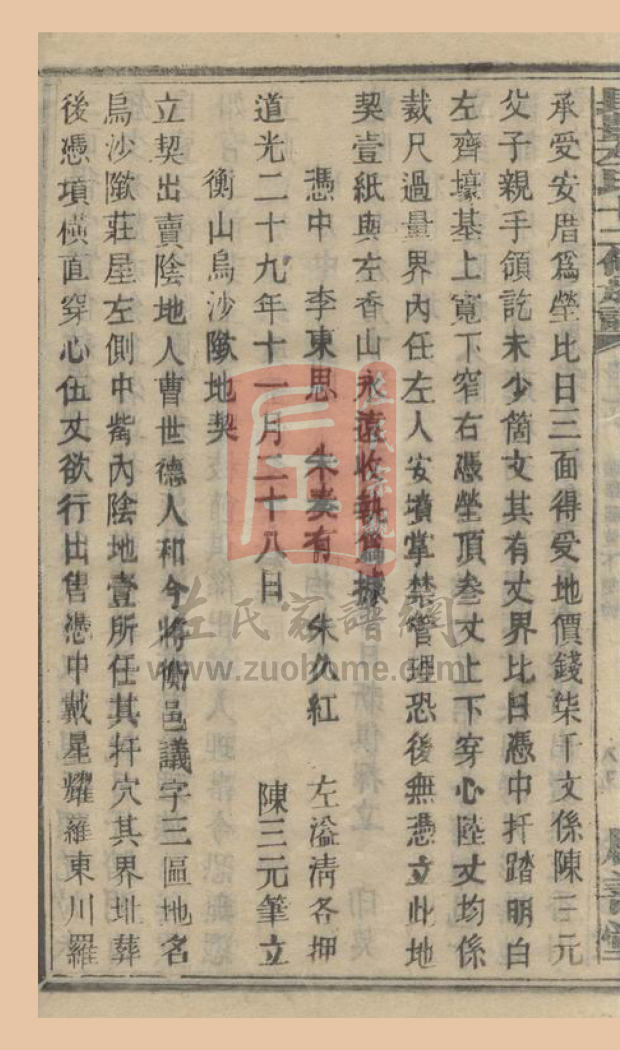 承受安厝爲塋比日三面得受地價錢柒千文係陳三元
父子親手領訖未少箇文其有丈界比日憑中扦踏明白
左齊壕基上寬下窄右憑塋頂叁丈上下穿心陸丈均係
裁尺過量界內任左人安墳掌禁管理恐後無憑立此地
契壹紙與左香山永遠收執爲據
憑中 李東思 朱奏有 朱久紅 左溢淸各押
道光二十九年十一月二十八日 陳三元筆立
衡山烏沙隞地契
立契出賣陰地人曹世德人和今將衡邑議字三區地名
烏沙隞莊屋左側中嘴內陰地壹所任其扞穴其界址葬
後憑項橫直穿心伍丈欲行出售憑中戴星耀羅東川羅
左氏家譜網
www.zuohome.com